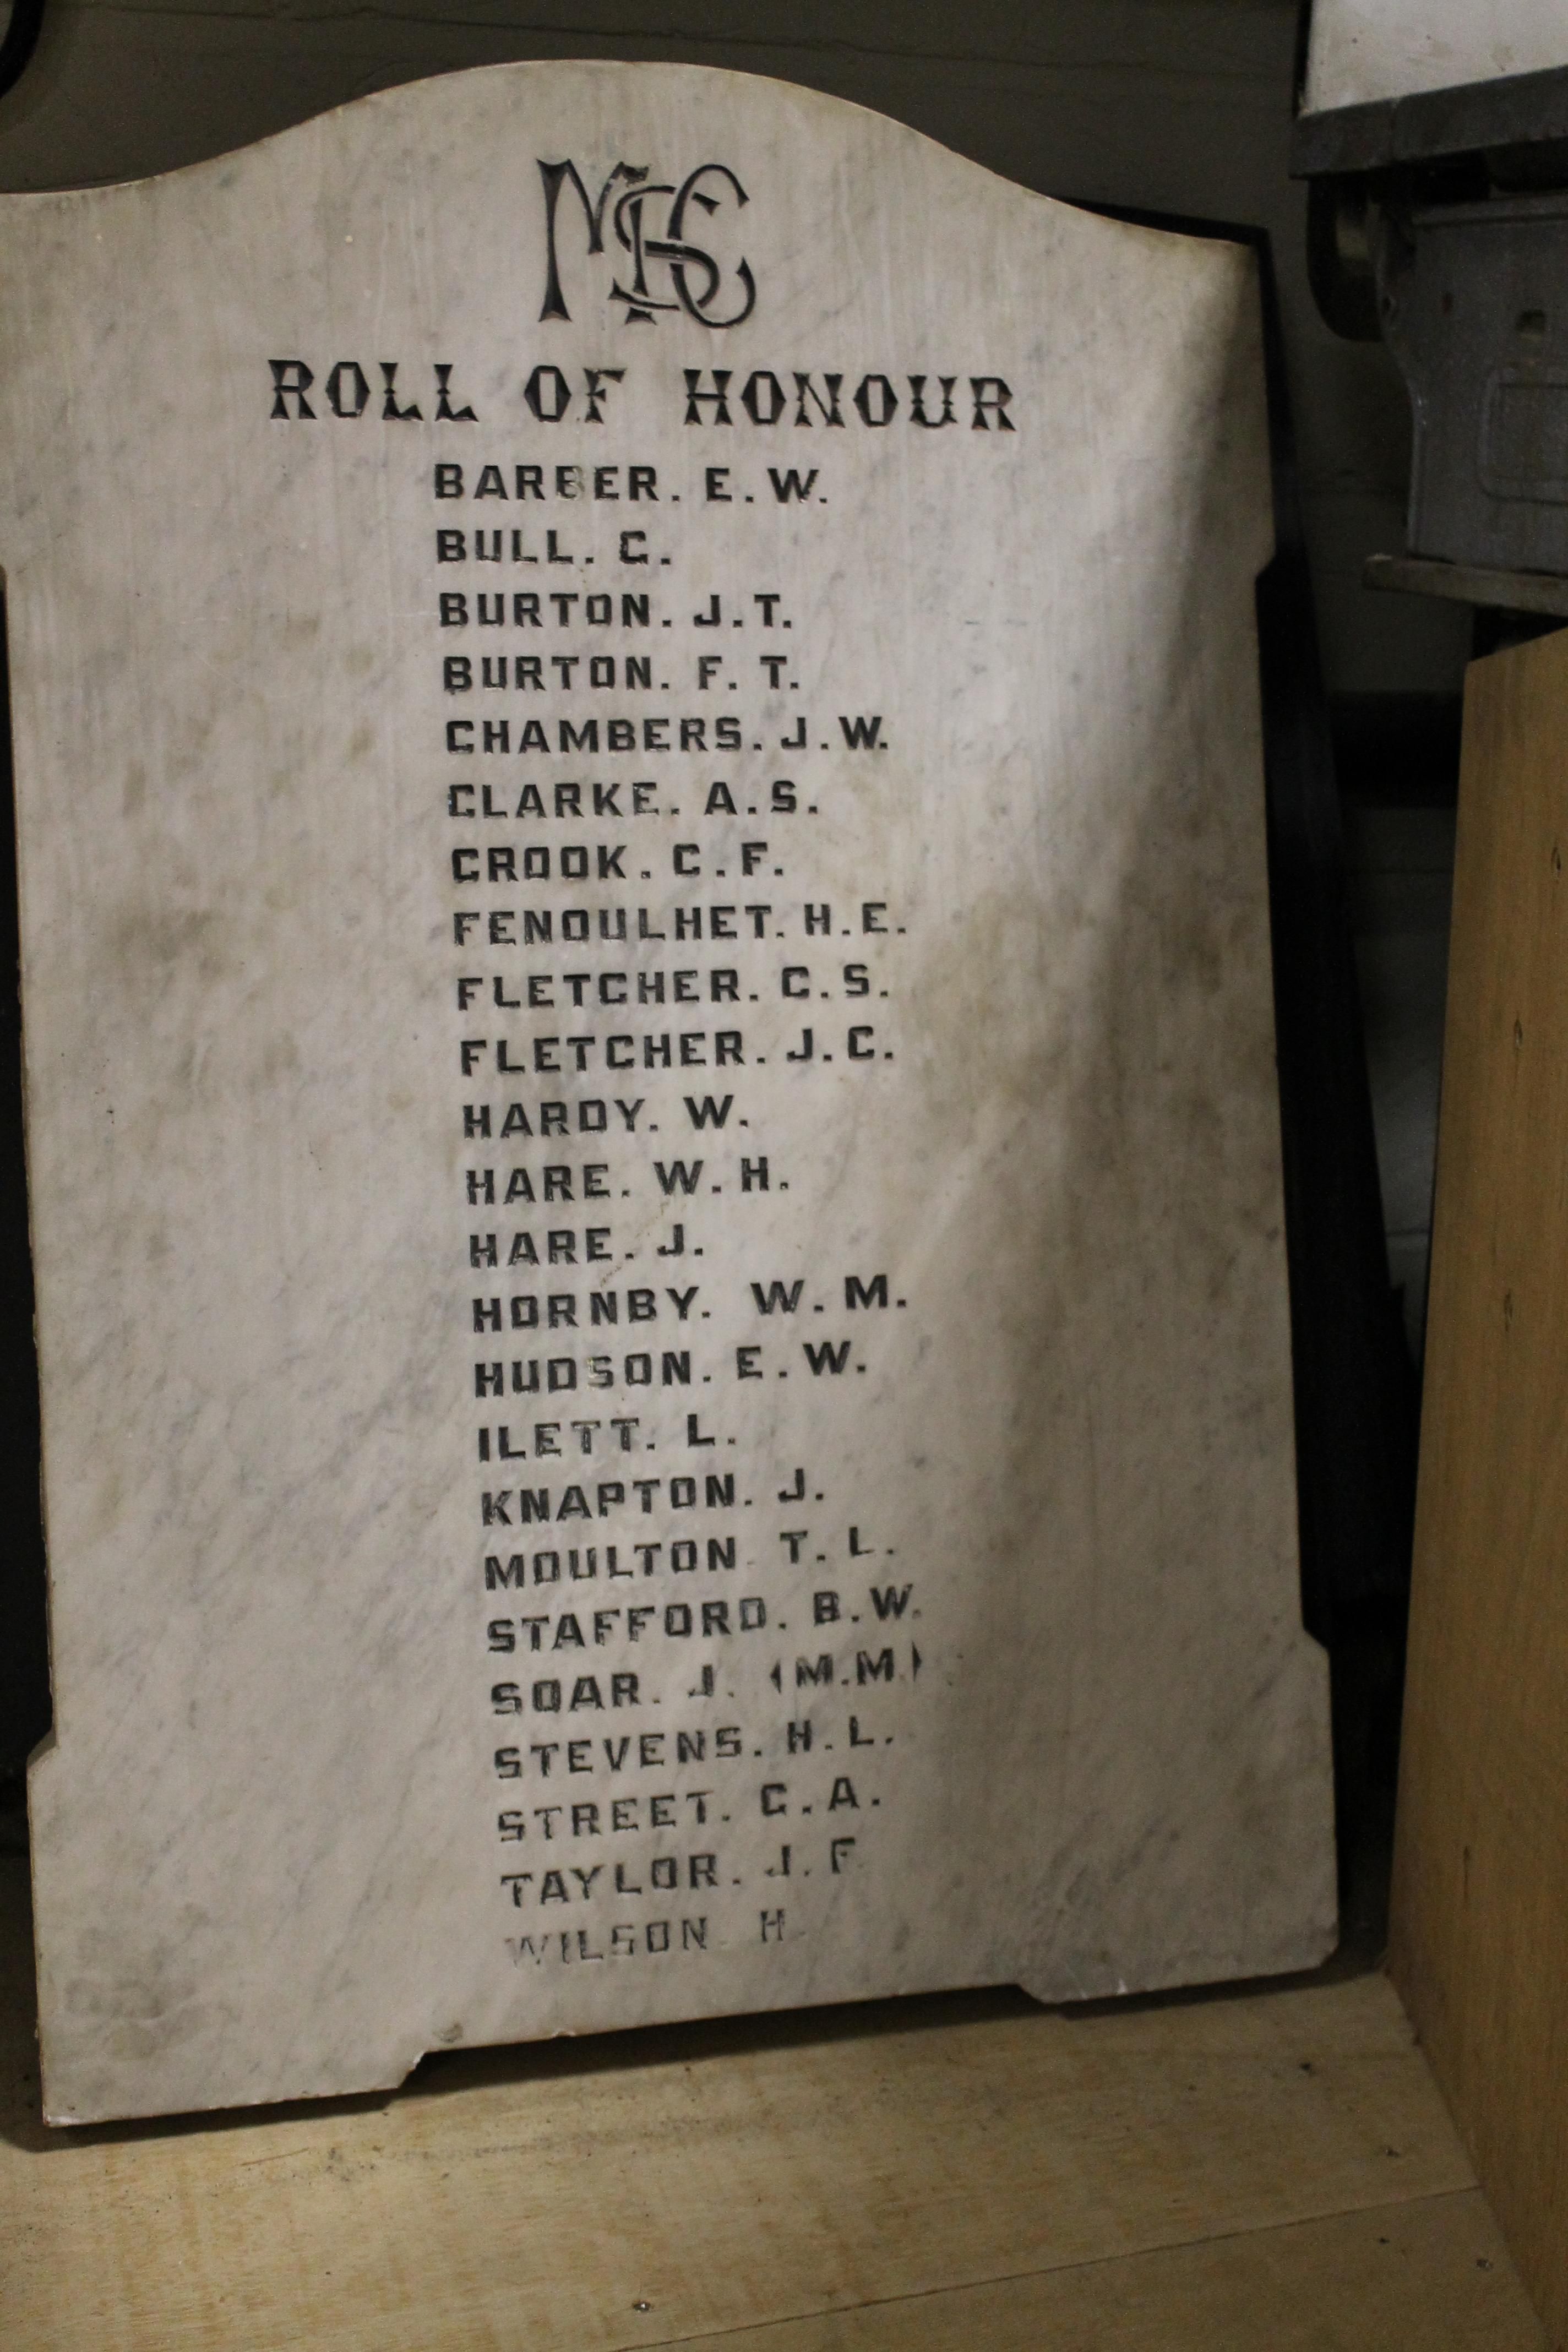 ROLL OF HONOUR
BARBER. E. W.
BULL. C.
BURTON. J. T.
BURTON. F. T.
CHAMBERS. J. W.
CLARKE. A. S.
CROOK. C. F.
FENOULHET. H. E.
FLETCHER. C. S.
FLETCHER. J. C.
HARDY. W.
HARE. W. H.
HARE. J.
HORNBY. W. M.
HUDSON. E. W.
ILETT. L.
KNAPTON. J.
MOULTON. T. L.
STAFFORD. B. W.
SOAR. J. (M.M)
STEVENS. H. L.
STREET. C. A.
TAYLOR. J. F
WILSON H.